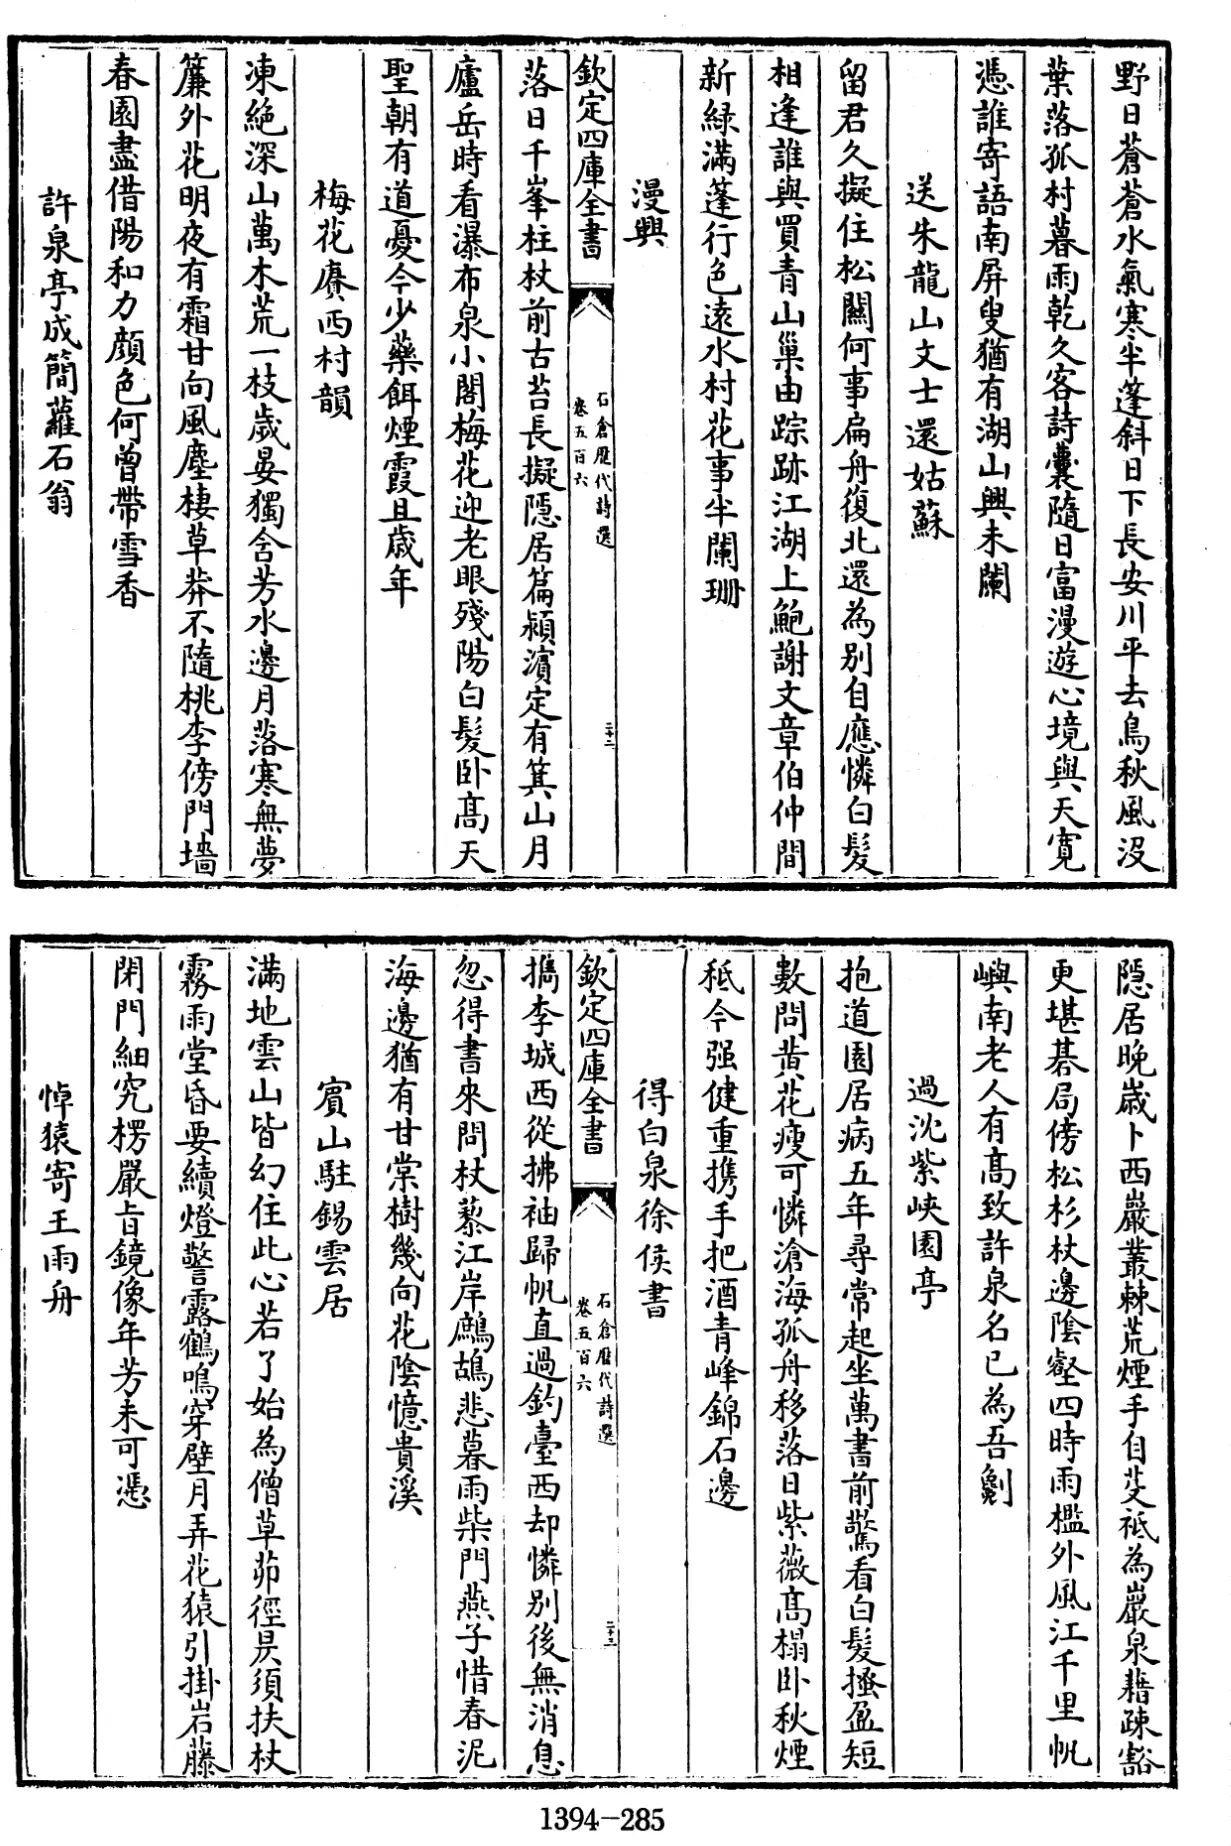 野日蒼蒼水氣寒半篷斜日下長安川平去鳥秋風没
葉落孤村暮雨乾久客詩囊隨日富漫遊心境與天寛
憑誰寄語南屏叟猶有湖山興未闌
送朱龍山文士還姑蘇
留君久擬住松關何事扁舟復北還為别自應憐白髪
相逢誰與買青山巢由踪跡江湖上鮑謝文章伯仲間
新緑滿篷行色遠水村花事半闌珊
漫興
欽定四庫全書
石倉歴代詩選
卷五百六
二十二
落日千峯柱杖前古苔長擬隱居篇潁濵定有箕山月
廬岳時看瀑布泉小閣梅花迎老眼殘陽白髪卧髙天
聖朝有道憂今少藥餌煙霞且歳年
梅花賡西村韻
凍絶深山萬木荒一枝歲晏獨含芳水邊月落寒無夢
簾外花明夜有霜甘向風塵棲草莽不隨桃李傍門墻
春園盡借陽和力顔色何曽帶雪香
許泉亭成簡蘿石翁
隠居晚歳卜西巖叢棘荒煙手自芟祇為巖泉藉疎豁
更堪碁局傍松杉杖邊陰壑四時雨檻外風江千里帆
嶼南老人有髙致許泉名已為吾劖
過沈紫峽園亭
抱道園居病五年尋常起坐萬書前驚看白髪搔盈短
數問黄花瘦可憐滄海孤舟移落日紫薇髙榻卧秋煙
秪今强健重携手把酒青峰錦石邊
得白泉徐侯書
欽定四庫全書
石倉歴代詩選
卷五百六
二十三
檇李城西從拂袖歸帆直過釣臺西却憐别後無消息
忽得書來問杖藜江岸鷓鴣悲暮雨柴門燕子惜春泥
海邊猶有甘棠樹幾向花陰憶貴溪
賓山駐錫雲居
滿地雲山皆幻住此心若了始為僧草茆徑昃須扶杖
霧雨堂昏要續燈警露鶴鳴穿壁月弄花猿引掛岩藤
閑門細究楞嚴旨鏡像年芳未可憑
悼猿寄王雨舟
1394-285